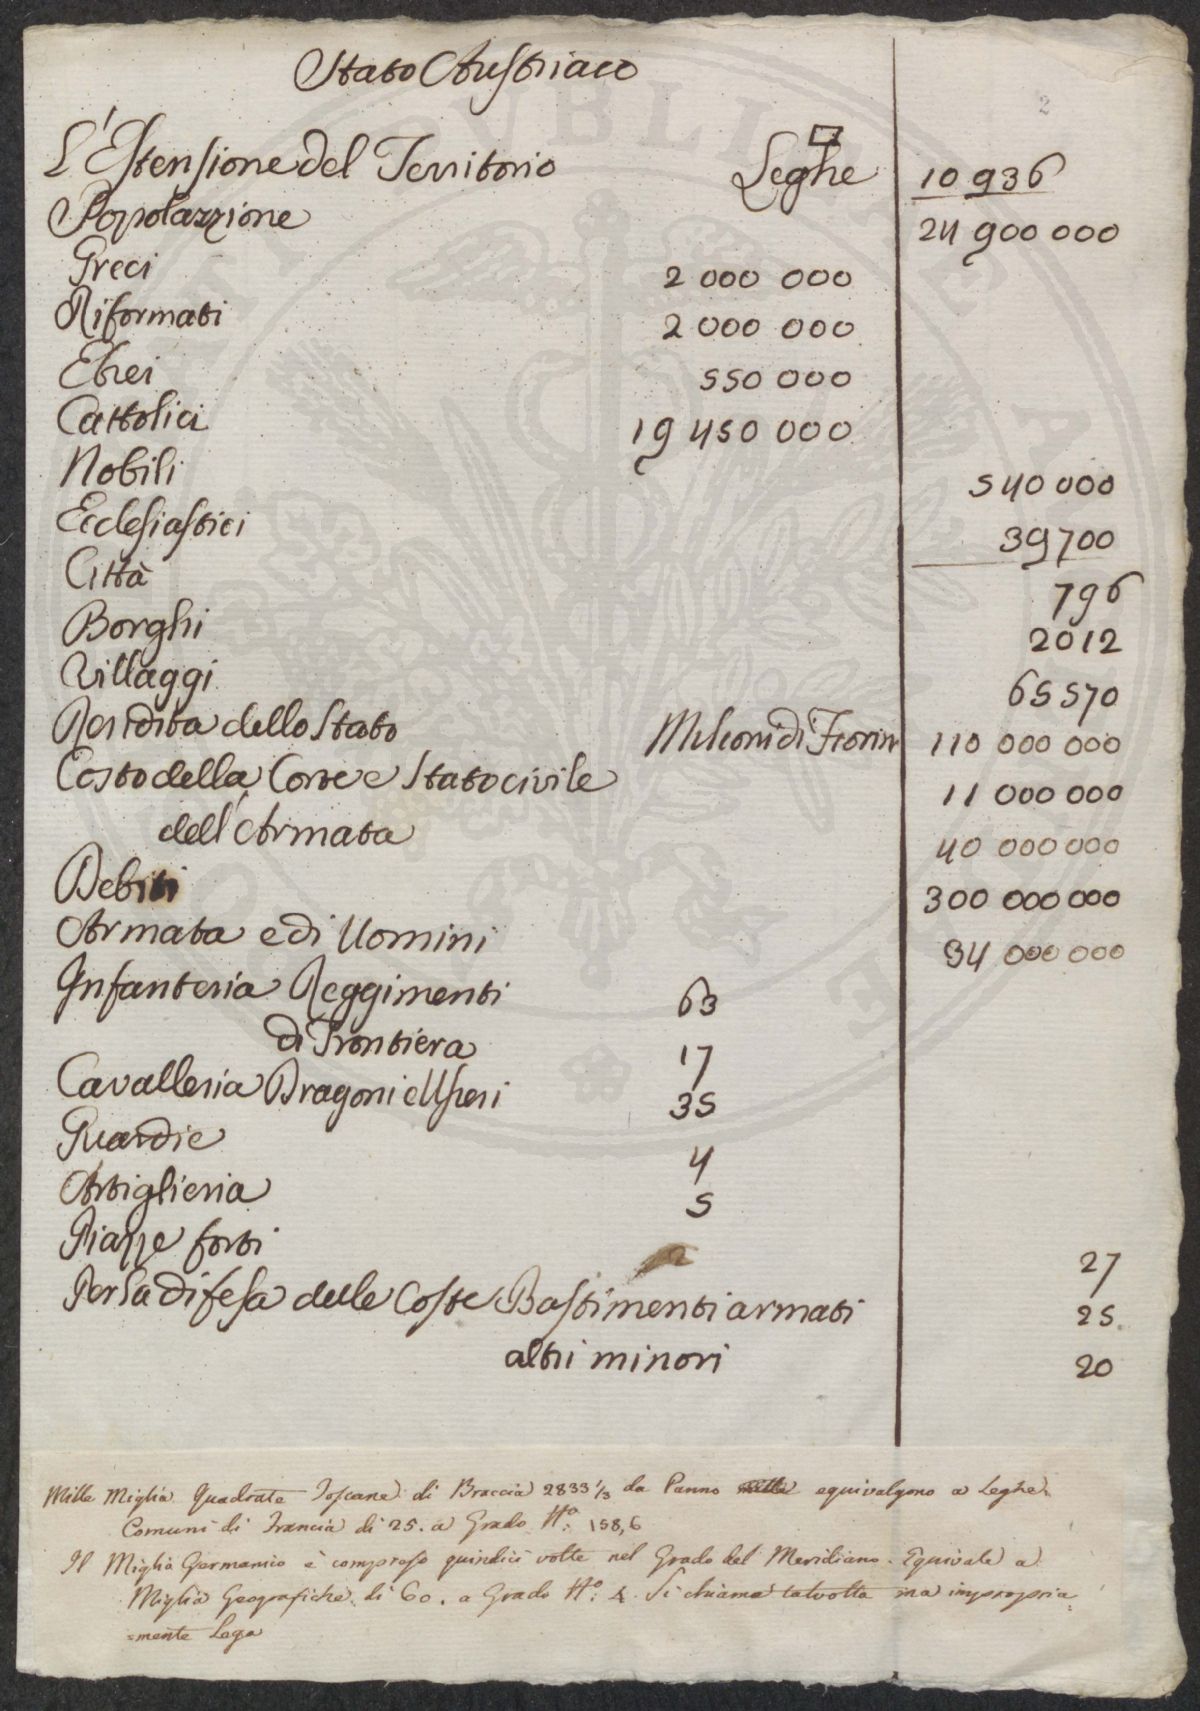 2
Stato Austriaco
L'Estensione del Territorio Leghe □ 10 936
Popolazzione 24 900 000
Greci 2 000 000
Riformati 2 000 000
Ebrei 550 000
Cattolici 19 450 000
Nobili 540 000
Ecclesiastici 39700
Città 796
Borghi 2012
Villaggi 65 570
Rendita dello Stato Milioni di Fiorin 110 000 000
Costo della Corte e Stato civile 11 000 000
dell'Armata 40 000 000
Debiti 300 000 000
Armata e di Uomini 34 000 000
Infanteria Reggimenti 63
di Frontiera 17
Cavalleria Dragoni e Usseri 35
Guardie 4
Artiglieria 5
Piazze forti 27
Per la difesa delle Coste Bastimenti armati 25.
altri minori 20
Mille Miglia Quadrate Toscane di Braccia 2833 1/3 da Panno equivalgono a Leghe
Comuni di Francia di 25. a Grado No. 158,6
Il Miglio Germanico è compreso quindici volte nel Grado del Meridiano. Equivale a
Miglia Geografiche di 60. a Grado No. 4. Si chiama talvolta ma impropria=
=mente Lega